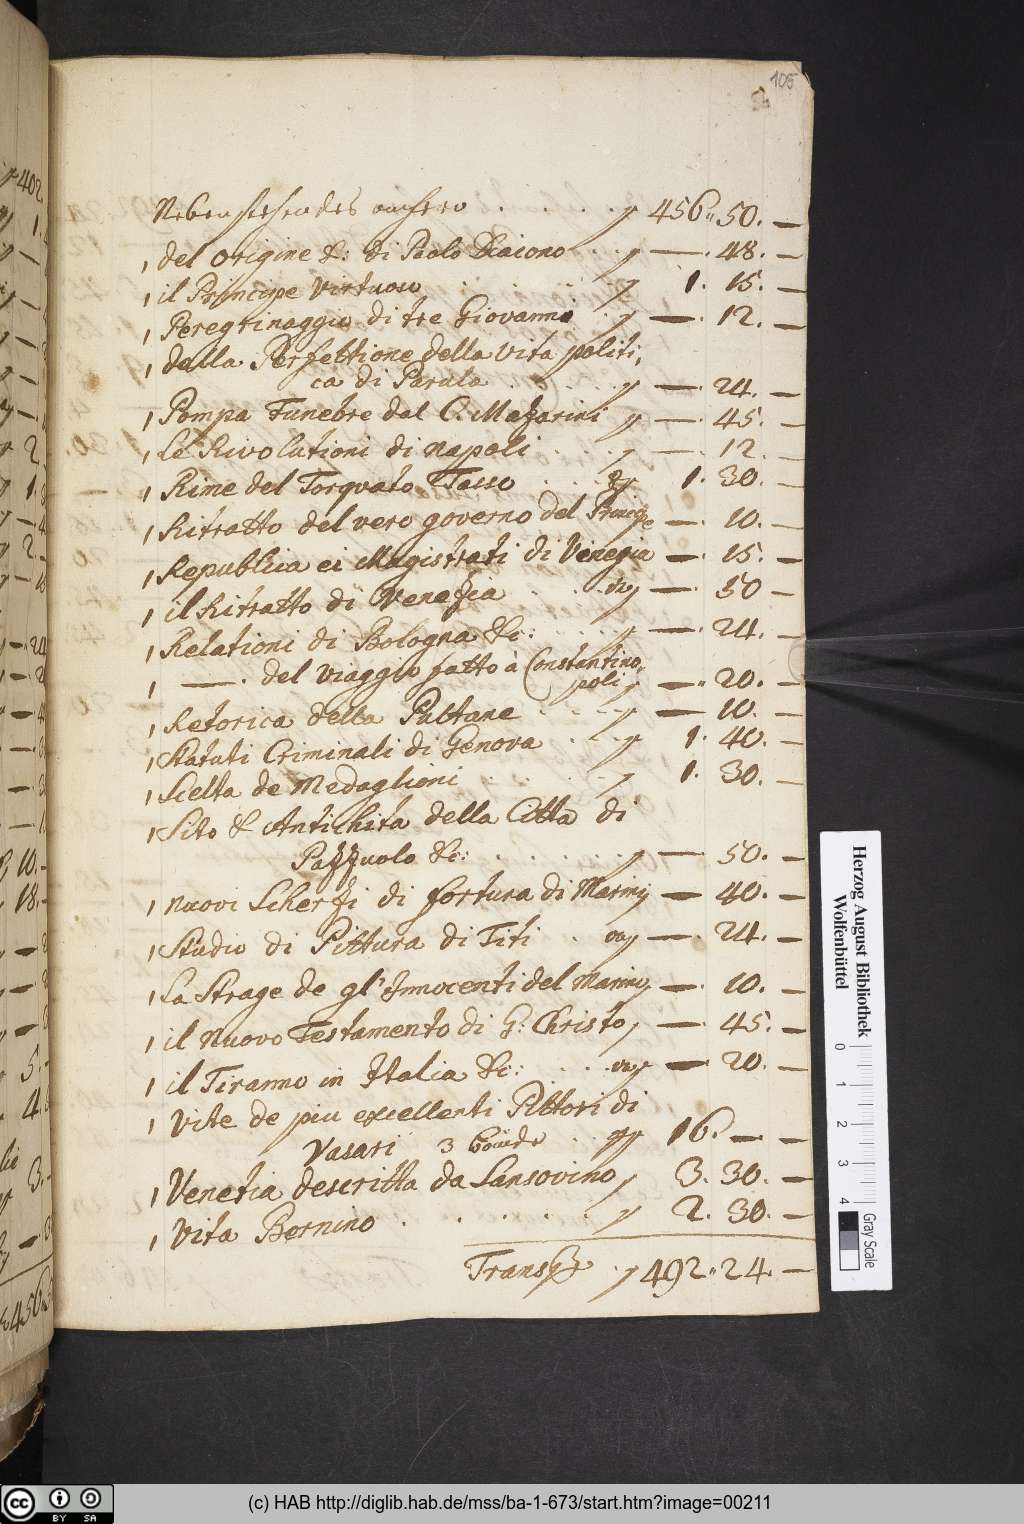 105
Nebenstehendes anhero . . . . 456 " 50. —
1 del origine &: di Paolo Diaiono . . — . 48. —
1 il Principe Virtuoso . . . . 1. 15. —
1 Peregrinaggio di tre Giovanni . — . 12. —
1 della Perfettione della vita politi,
ca di Paruta . . . . — . 24. —
1 Pompa Funebre dal C. Mazarini — . 45. —
1 Le Rivolutioni di Napoli . . . — . 12. —
1 Rime del Torquato Tasso . . . 1. 30. —
1 Ritratto del vero governo del Principe — . 10. —
1 Republica ei Magistrati di Venegia — . 15. —
1 il Ritratto di Venezia . . . — . 50 —
1 Relationi di Bologna &c: . . . — . 24. —
1 — . del viaggio fatto à Constantino,
poli — " 20. —
1 Retorica della Puttane . . . . — 10. —
1 Statuti Criminali di Genova . . . 1. 40. —
1 Scelta de Medaglioni . . . . 1. 30. —
1 Sito & Antichita della Citta di
Pozzuolo &c: . . . . . — . 50. —
1 Nuovi Scherzi di fortura di Mariny — . 40. —
1 Studio di Pittura di Titi . — . 24. —
1 La Strage de gl' Innocenti del Mariny — . 10. —
1 il Nuovo Testamento di G: Christo, — . 45. —
1 il Tiranno in Italia &c: . . . — . 20. —
1 Vite de piu excellenti Pittori di
Vasari 3 Bände . . 16. — . —
1 Venetia descritta da Sansovino, 3. 30. —
1 Vita Bernino . . . . . . 2. 30. —
Transp . 492 " 24. —
Herzog August Bibliothek
Wolfenbüttel
0 1 2 3 4
Gray Scale
cc BY SA
(c) HAB http://diglib.hab.de/mss/ba-1-673/start.htm?image=00211